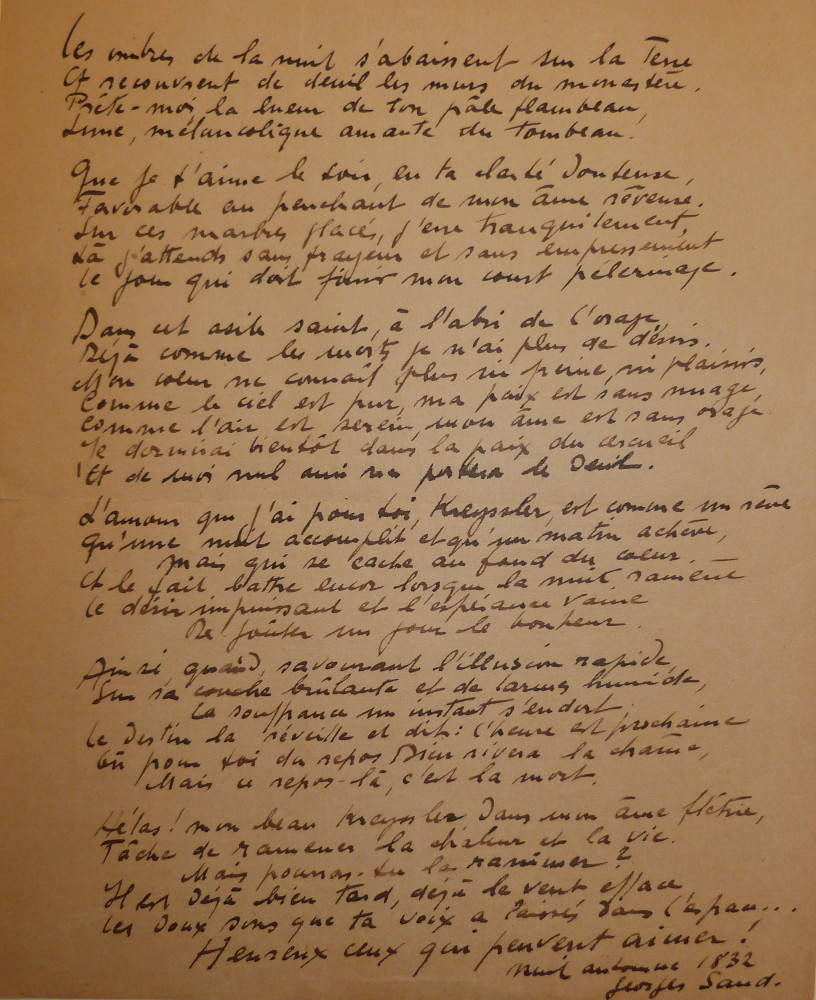 Les ombres de la nuit s'abaissent sur la Terre
Et recouvrent de deuil les murs du monastère.
Prête-moi la lueur de ton pâle flambeau,
Lune, mélancolique amante du tombeau.
Que je t'aime le soir, en ta clarté douteuse,
Favorable au penchant de mon âme rêveuse.
Sur ces marbres glacés, j'erre tranquilement,
Là j'attends sans frayeur et sans empressement
le jour qui doit finir mon court pèlerinage.
Dans cet asile saint, à l'abri de l'orage,
Déjà comme les morts je n'ai plus de désirs.
Mon cœur ne connaît plus ni peine, ni plaisirs,
Comme le ciel est pur, ma paix est sans nuage,
Comme l'air est serein, mon âme est sans orage.
Je dormirai bientôt dans la paix du cercueil
Et de moi nul ami ne portera le Deuil.
L'amour que j'ai pour toi, Kreyssler, est comme un rêve
Qu'une nuit accomplit et qu'un matin achève,
Mais qui se cache au fond du cœur.
Et le fait battre encor lorsque la nuit ramène
le désir impuissant et l'espérance vaine
De goûter un jour le bonheur.
Ainsi quand, savourant l'illusion rapide,
Sur sa couche brûlante et de larmes humide,
La souffrance un instant s'endort,
le Destin la réveille et dit: l'heure est prochaine
Où pour toi du repos Dieu rivera la chaîne,
Mais ce repos-là, c'est la mort.
Hélas! mon beau Kreyssler, Dans mon âme flétrie,
Tâche de ramener la chaleur et la vie.
Mais pourras-tu la ranimer?
Il est Déjà bien tard, déjà le vent efface
les Doux sons que ta voix a laissés dans l'espace...
Heureux ceux qui peuvent aimer!
Nuit automne 1832
Georges Sand.